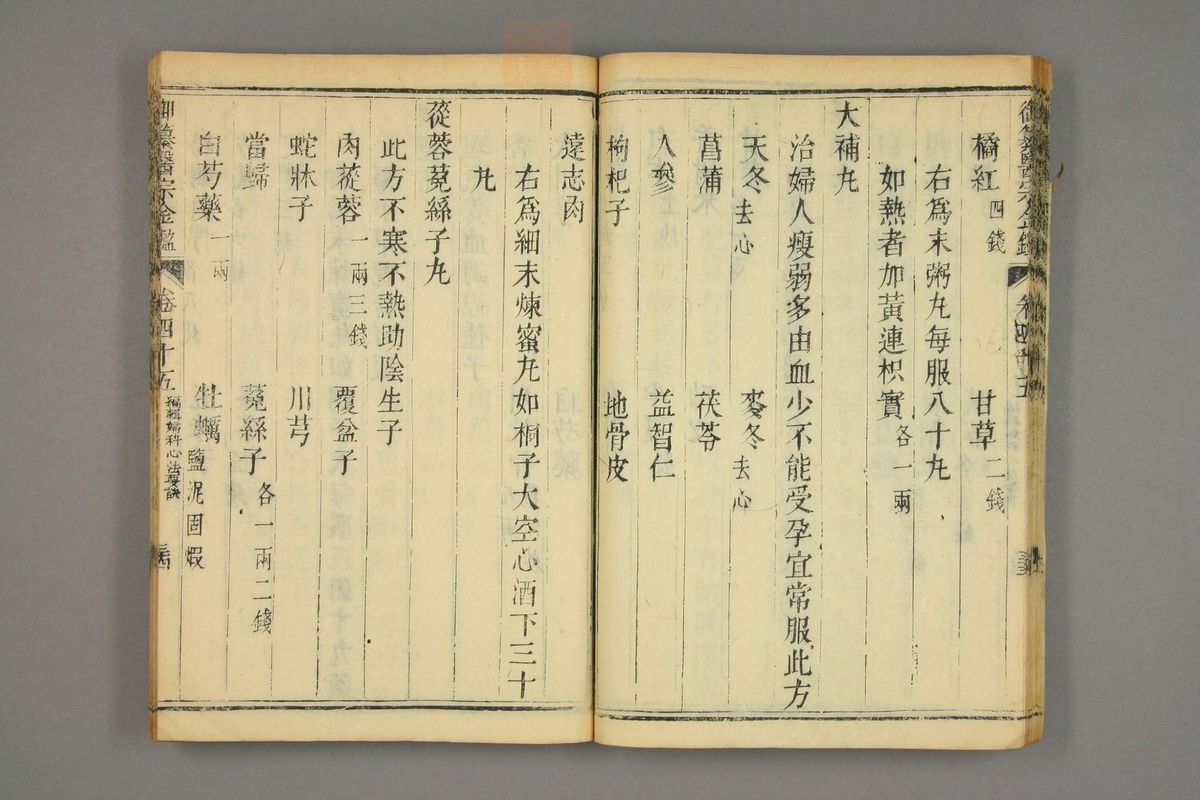 橘紅四錢 甘草二錢
右爲末粥丸每服八十丸
如熱者加黃連枳實各一兩
大補丸
治婦人瘦弱多由血少不能受孕宜常服此方
天冬去心 麥冬去心
菖蒲 茯苓
人參 益智仁
枸杞子 地骨皮
遠志肉
右爲細末煉蜜丸如桐子大空心酒下三十
丸
蓯蓉菟絲子丸
此方不寒不熱助陰生子
肉蓯蓉一兩三錢 覆盆子
蛇牀子 川芎
當歸 菟絲子各一兩二錢
白芍藥一兩 牡蠣鹽泥固煆
御纂醫宗金鑑 卷四十五 編輯婦科心法要訣